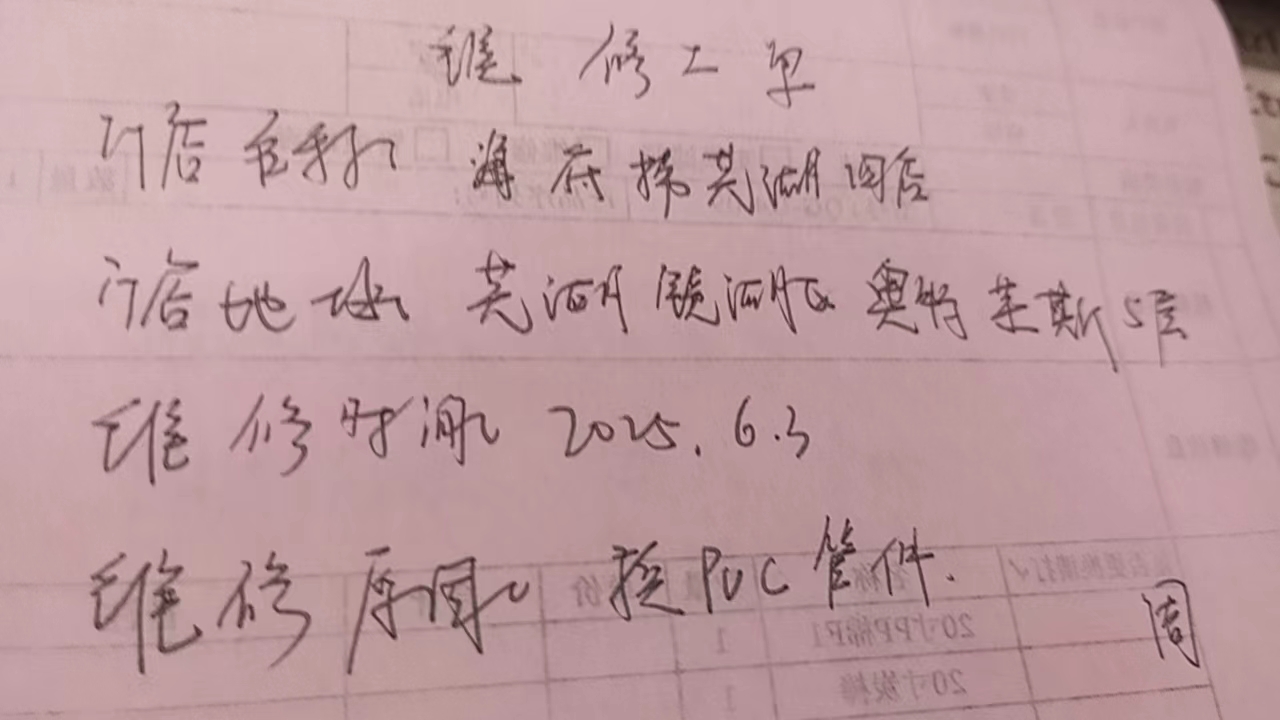 维修工单
门店名称: 薄荷捞芜湖四店
门店地址: 芜湖镜湖区奥特莱斯5层
维修时间: 2025.6.3
维修原因: 换PVC管件.
周
20寸PP棉P1 1
20寸炭棒 1